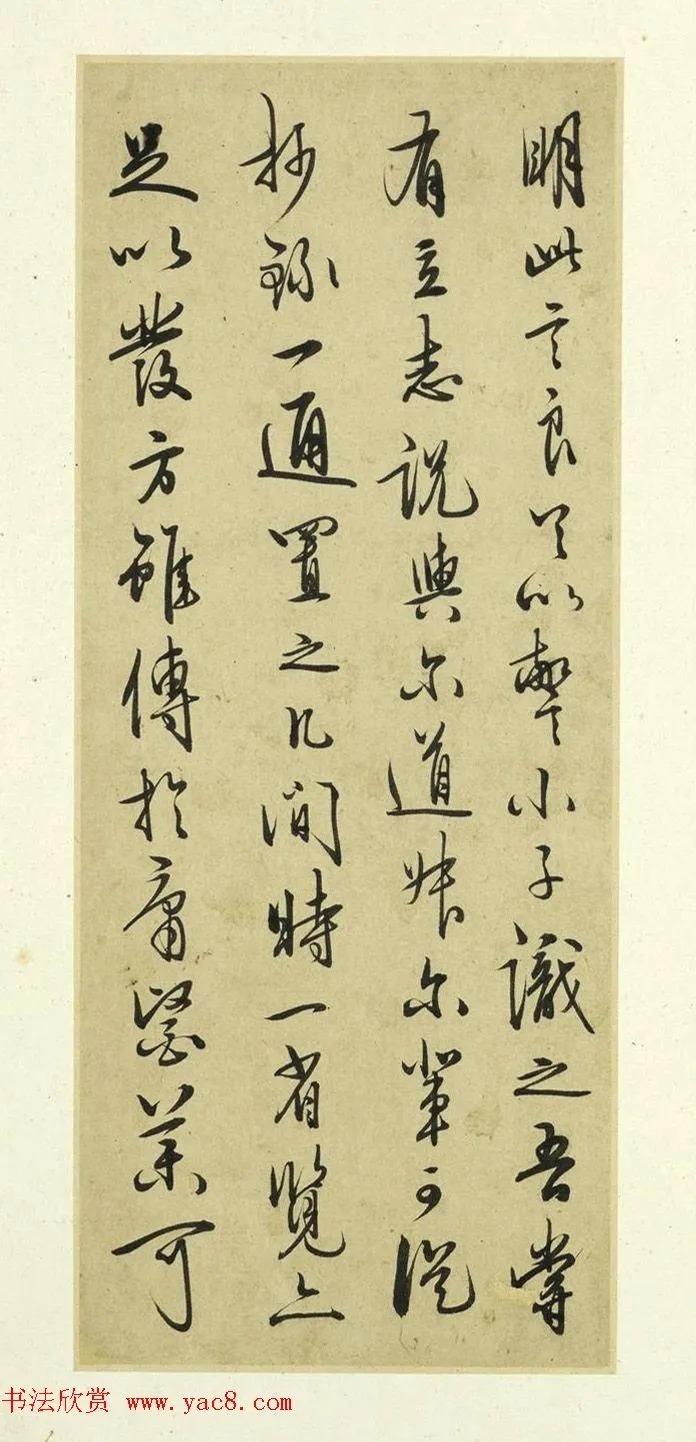 明此言良足以警小子識之吾嘗
有立志說與尔道
尔輩可從
抄錄一通置之几間時一省覽亦
足以發方雖傳於庸醫藥可
书法欣赏 www.yac8.com